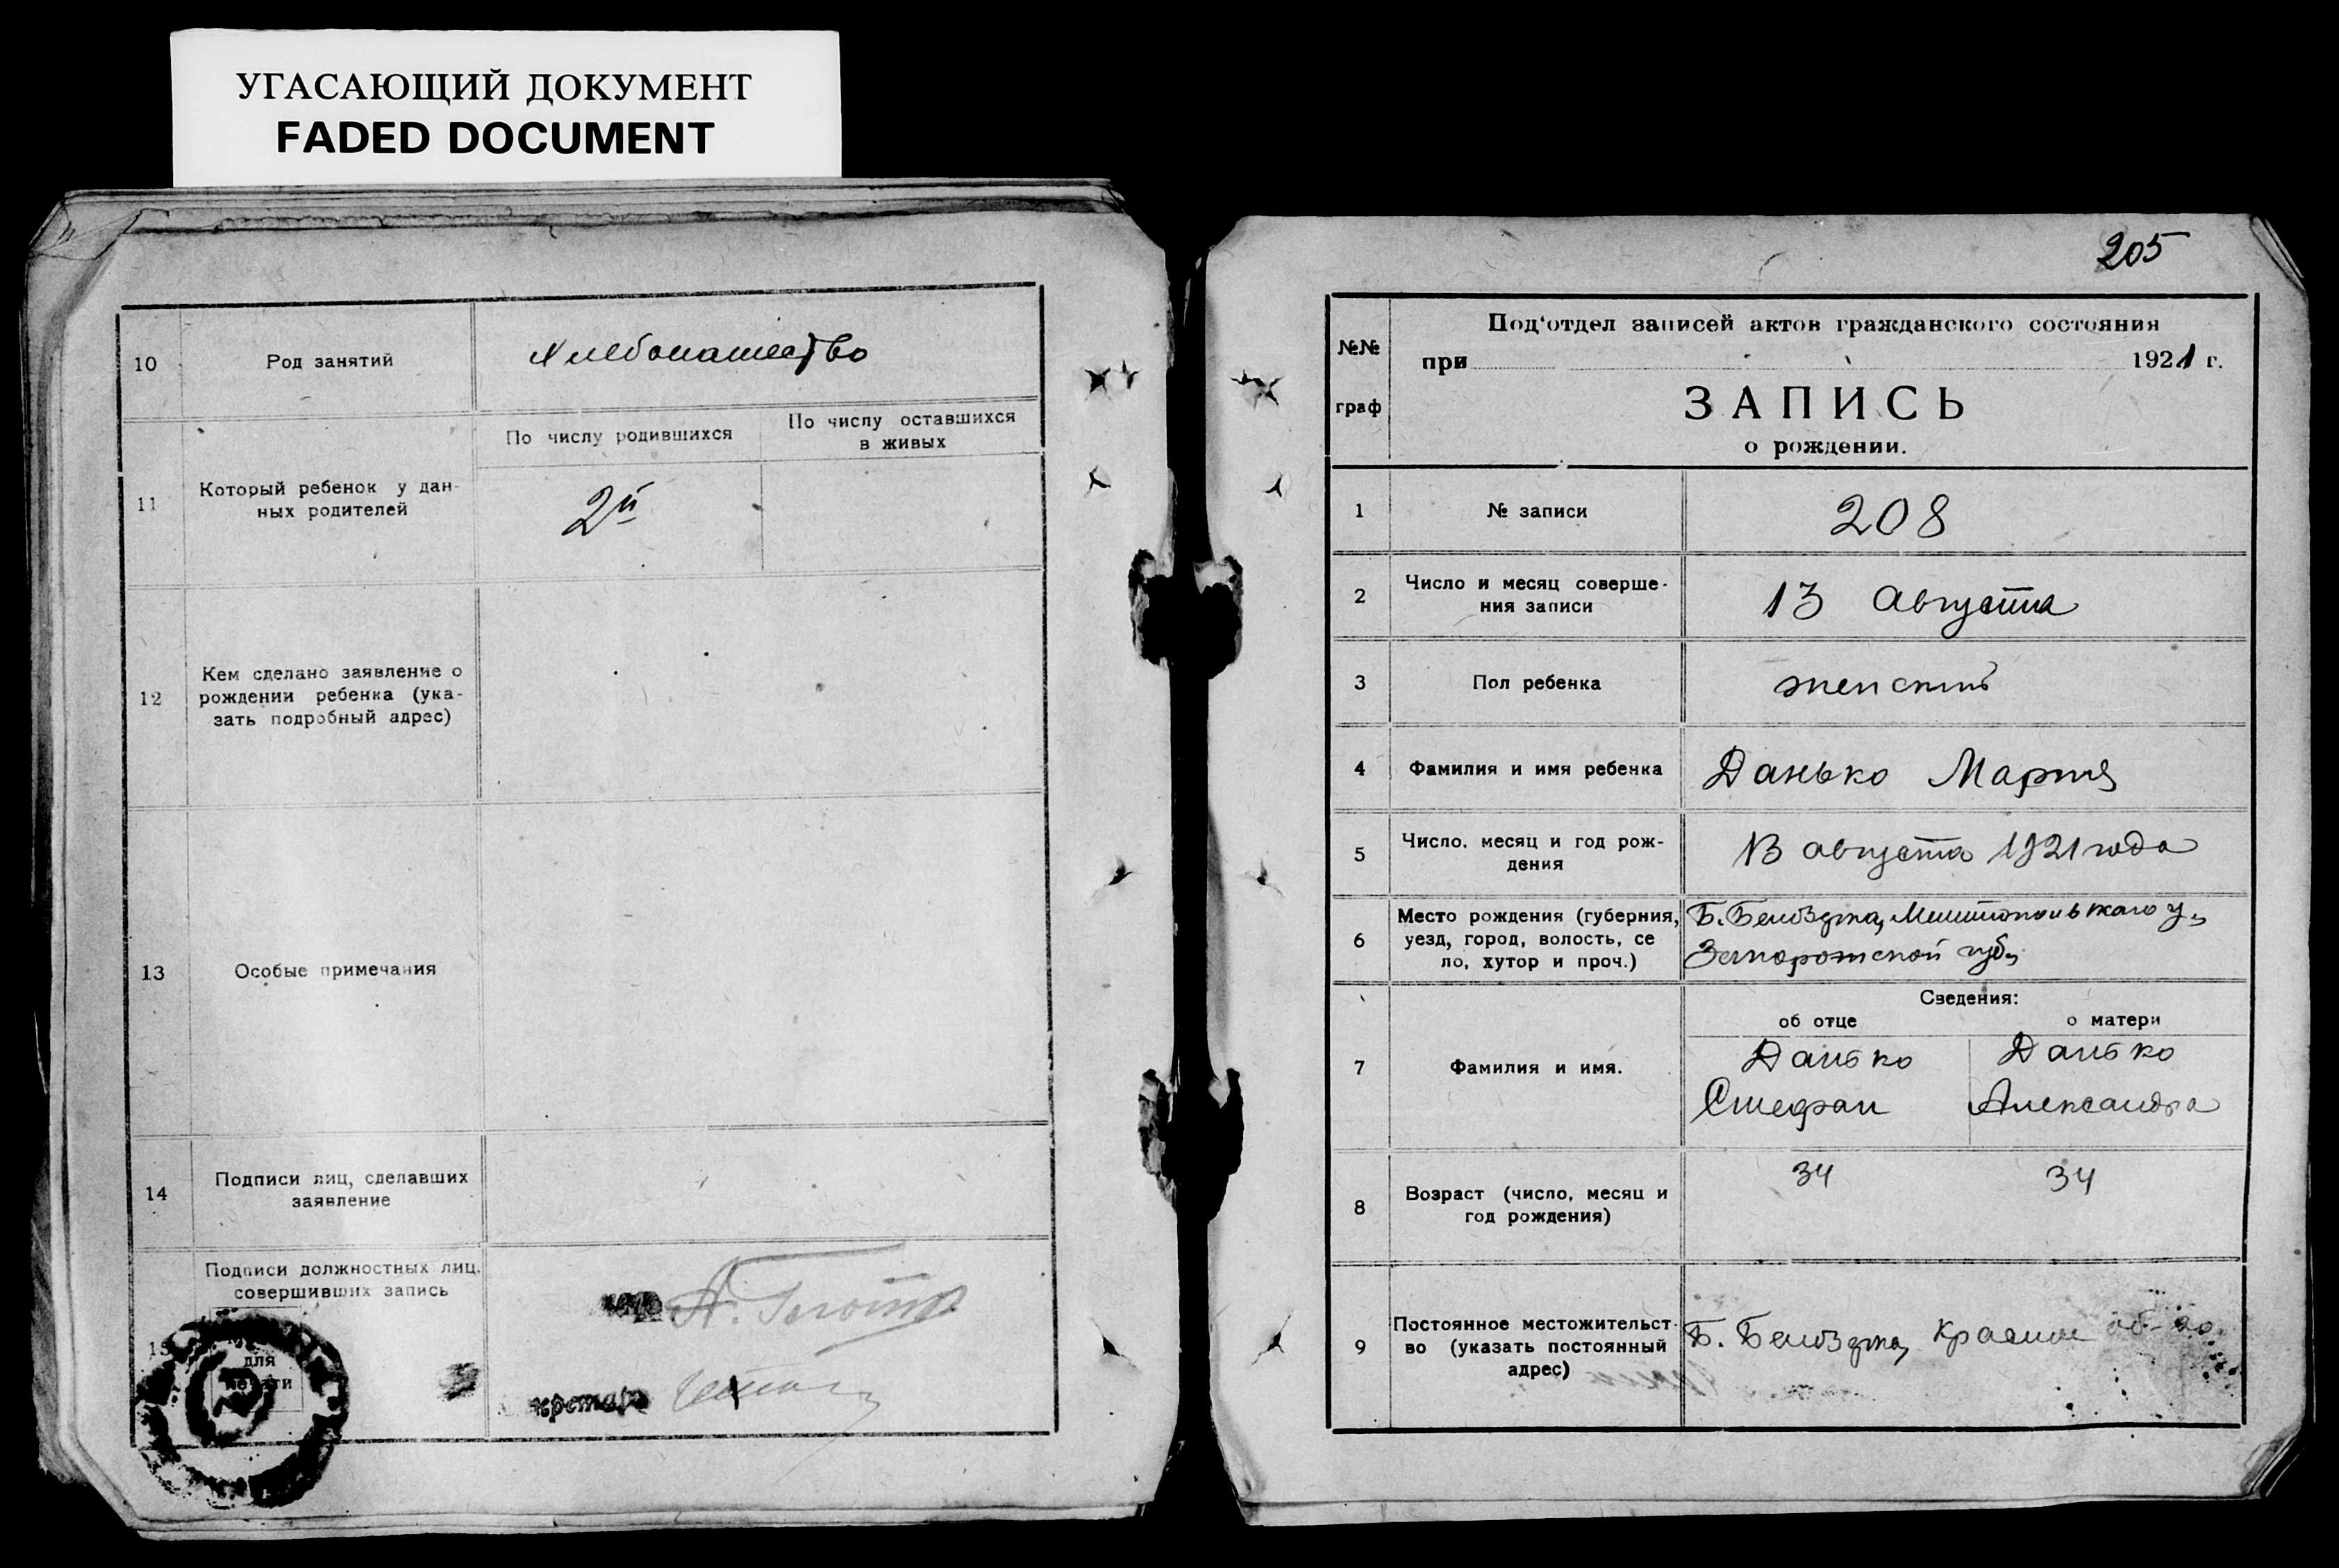 УГАСАЮЩИЙ ДОКУМЕНТ
FADED DOCUMENT
10
Род занятий
Хлебопашество
11
Который ребенок у дан-
ных родителей
По числу родившихся
По числу оставшихся
в живых
2й
12
Кем сделано заявление о
рождении ребенка (ука-
зать подробный адрес)
13
Особые примечания
14
Подписи лиц, сделавших
заявление
Подписи должностных лиц,
совершивших запись
15
для
печати
205
№№
граф
Под'отдел записей актов гражданского состояния
при 1921 г.
ЗАПИСЬ
о рождении.
1
№ записи
208
2
Число и месяц соверше-
ния записи
13 августа
3
Пол ребенка
женский
4
Фамилия и имя ребенка
Данько Мария
5
Число, месяц и год рож-
дения
13 августа 1921 года
6
Место рождения (губерния,
уезд, город, волость, се
ло, хутор и проч.)
Б. Белозерка, Мелитопольского у.
Запорожской губ.
Сведения:
об отце
о матери
7
Фамилия и имя.
Данько
Стефан
Данько
Александра
8
Возраст (число, месяц и
год рождения)
34
34
9
Постоянное местожительст-
во (указать постоянный
адрес)
Б. Белозерка, об-во